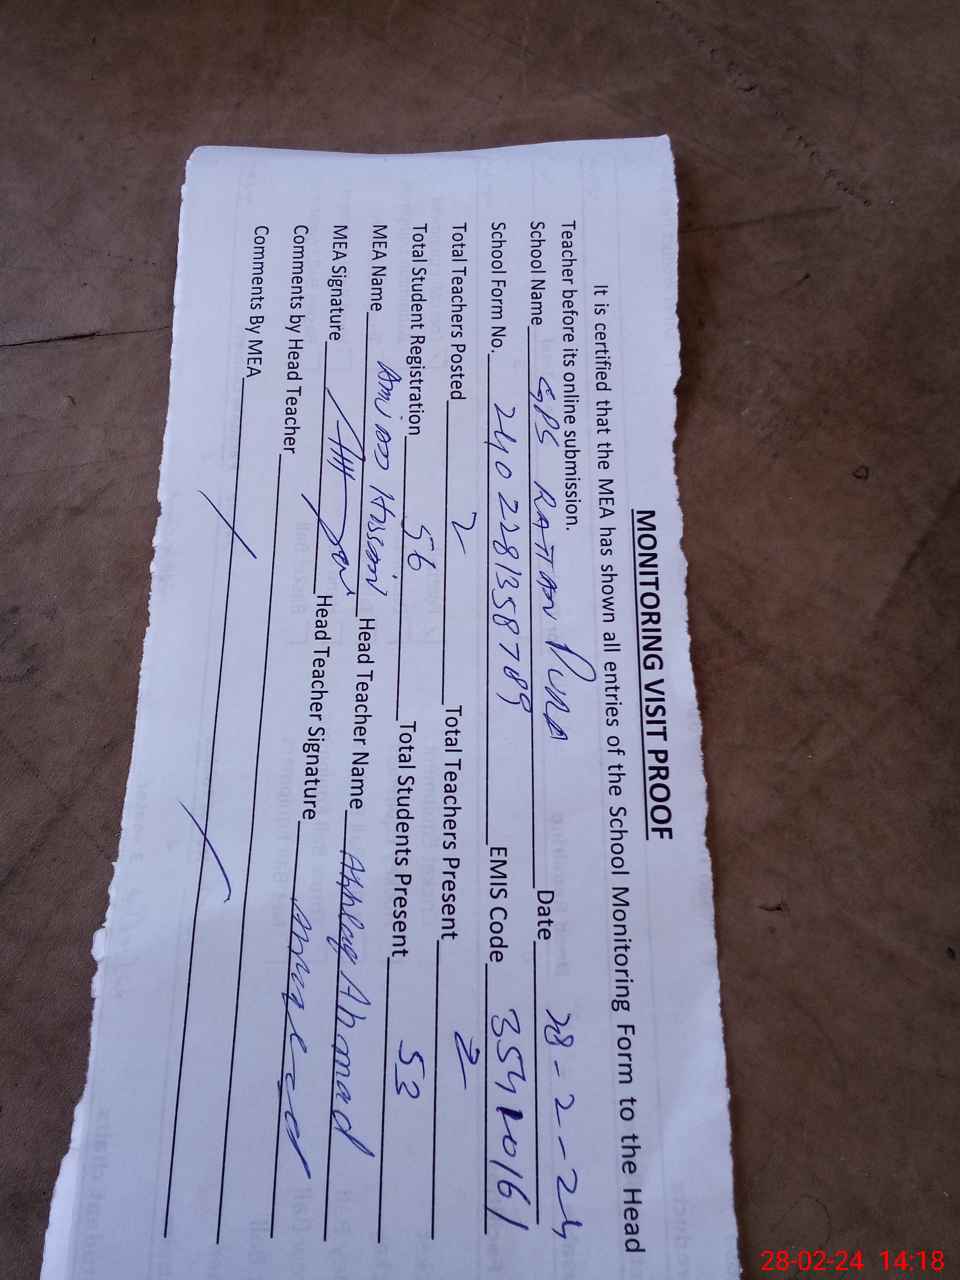 MONITORING VISIT PROOF
It is certified that the MEA has shown all entries of the School Monitoring Form to the Head
Teacher before its online submission.
School Name GPS RATTAN PURA Date 28-2-24
School Form No. 2402281358789 EMIS Code 35410161
Total Teachers Posted 2 Total Teachers Present 2
Total Student Registration 56 Total Students Present 53
MEA Name Hassan Head Teacher Name Ahmad
MEA Signature Head Teacher Signature
Comments by Head Teacher
Comments By MEA
28-02-24 14:18